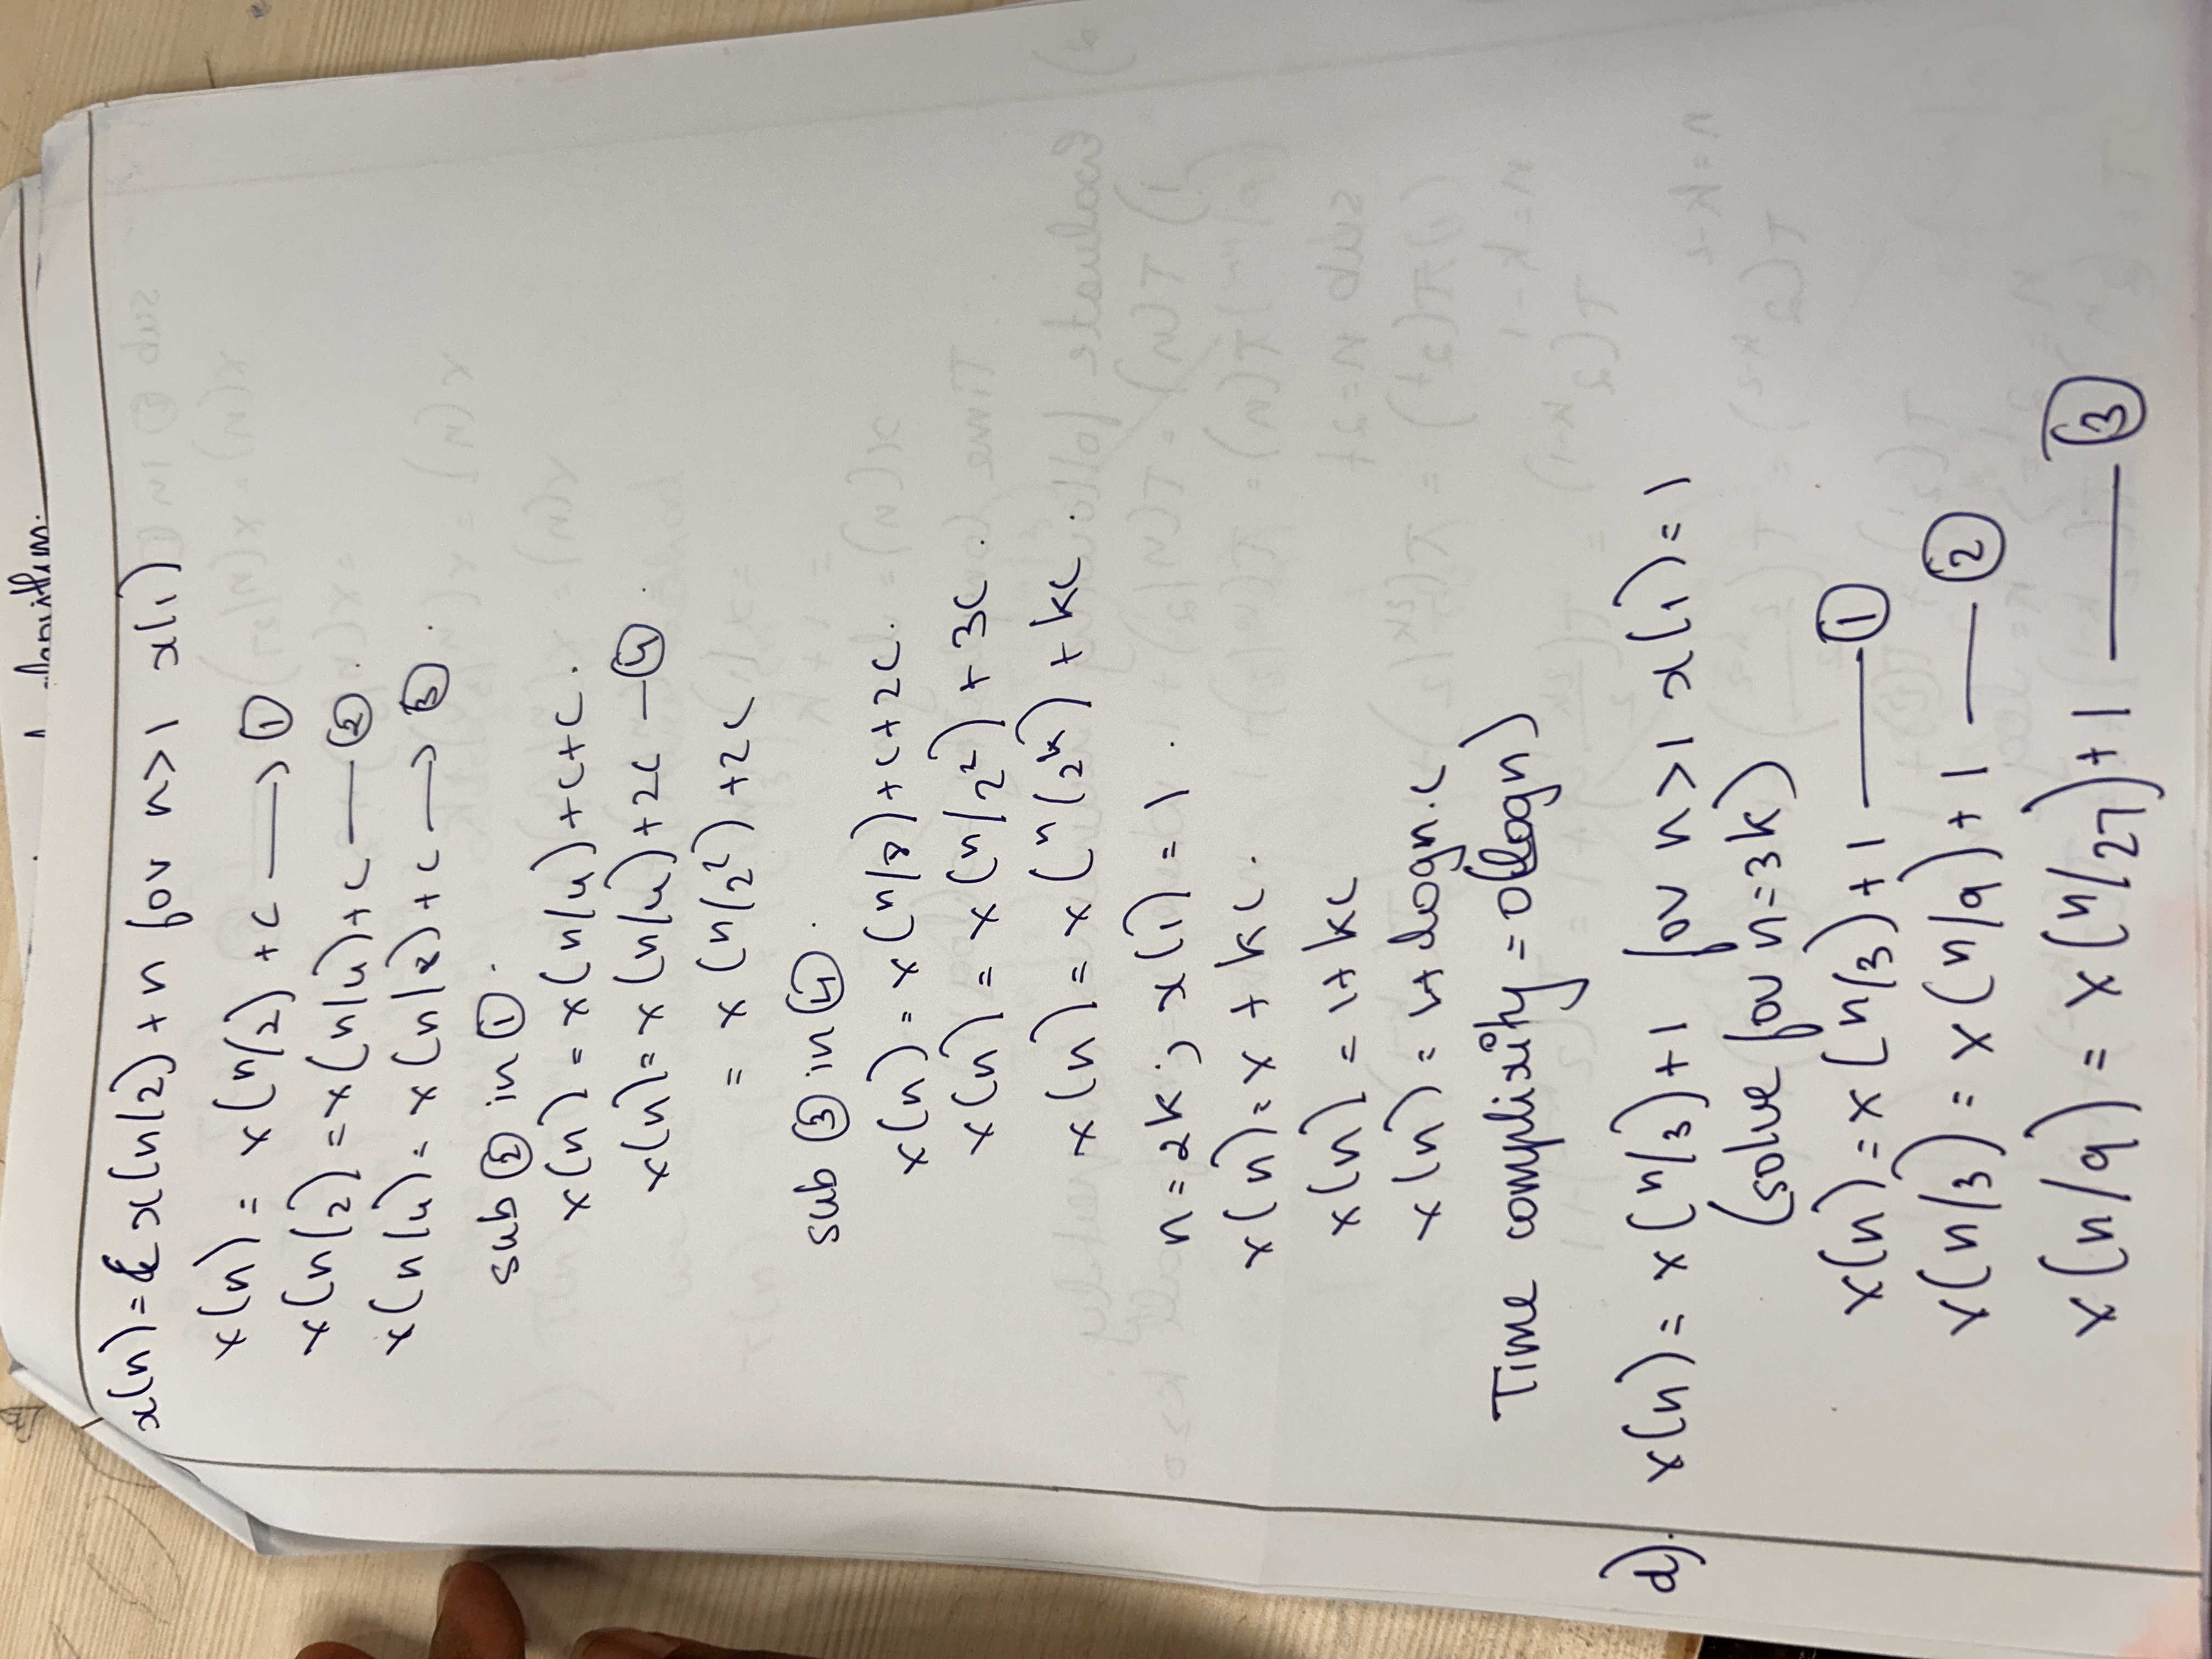 algorithm.
x(n) = x(n/2) + n for n>1 x(1)
x(n) = x(n/2) + c ⟶ ①
x(n/2) = x(n/4) + c — ② .
x(n/4) = x(n/8) + c ⟶ ③ .
sub ② in ① .
x(n) = x(n/4) + c + c .
x(n) = x(n/4) + 2c — ④ .
= x(n/2²) + 2c
sub ③ in ④ .
x(n) = x(n/8) + c + 2c .
x(n) = x(n/2²) + 3c .
x(n) = x(n/2ᵏ) + kc .
n = 2k ; x(1) = 1 .
x(n) = x + kc .
x(n) = 1 + kc
x(n) = 1 + logn.c
Time complixity = O(logn)
d). x(n) = x(n/3) + 1 for n>1 x(1) = 1
(solve for n=3k)
x(n) = x(n/3) + 1 — ①
x(n/3) = x(n/9) + 1 — ②
x(n/9) = x(n/27) + 1 — ③